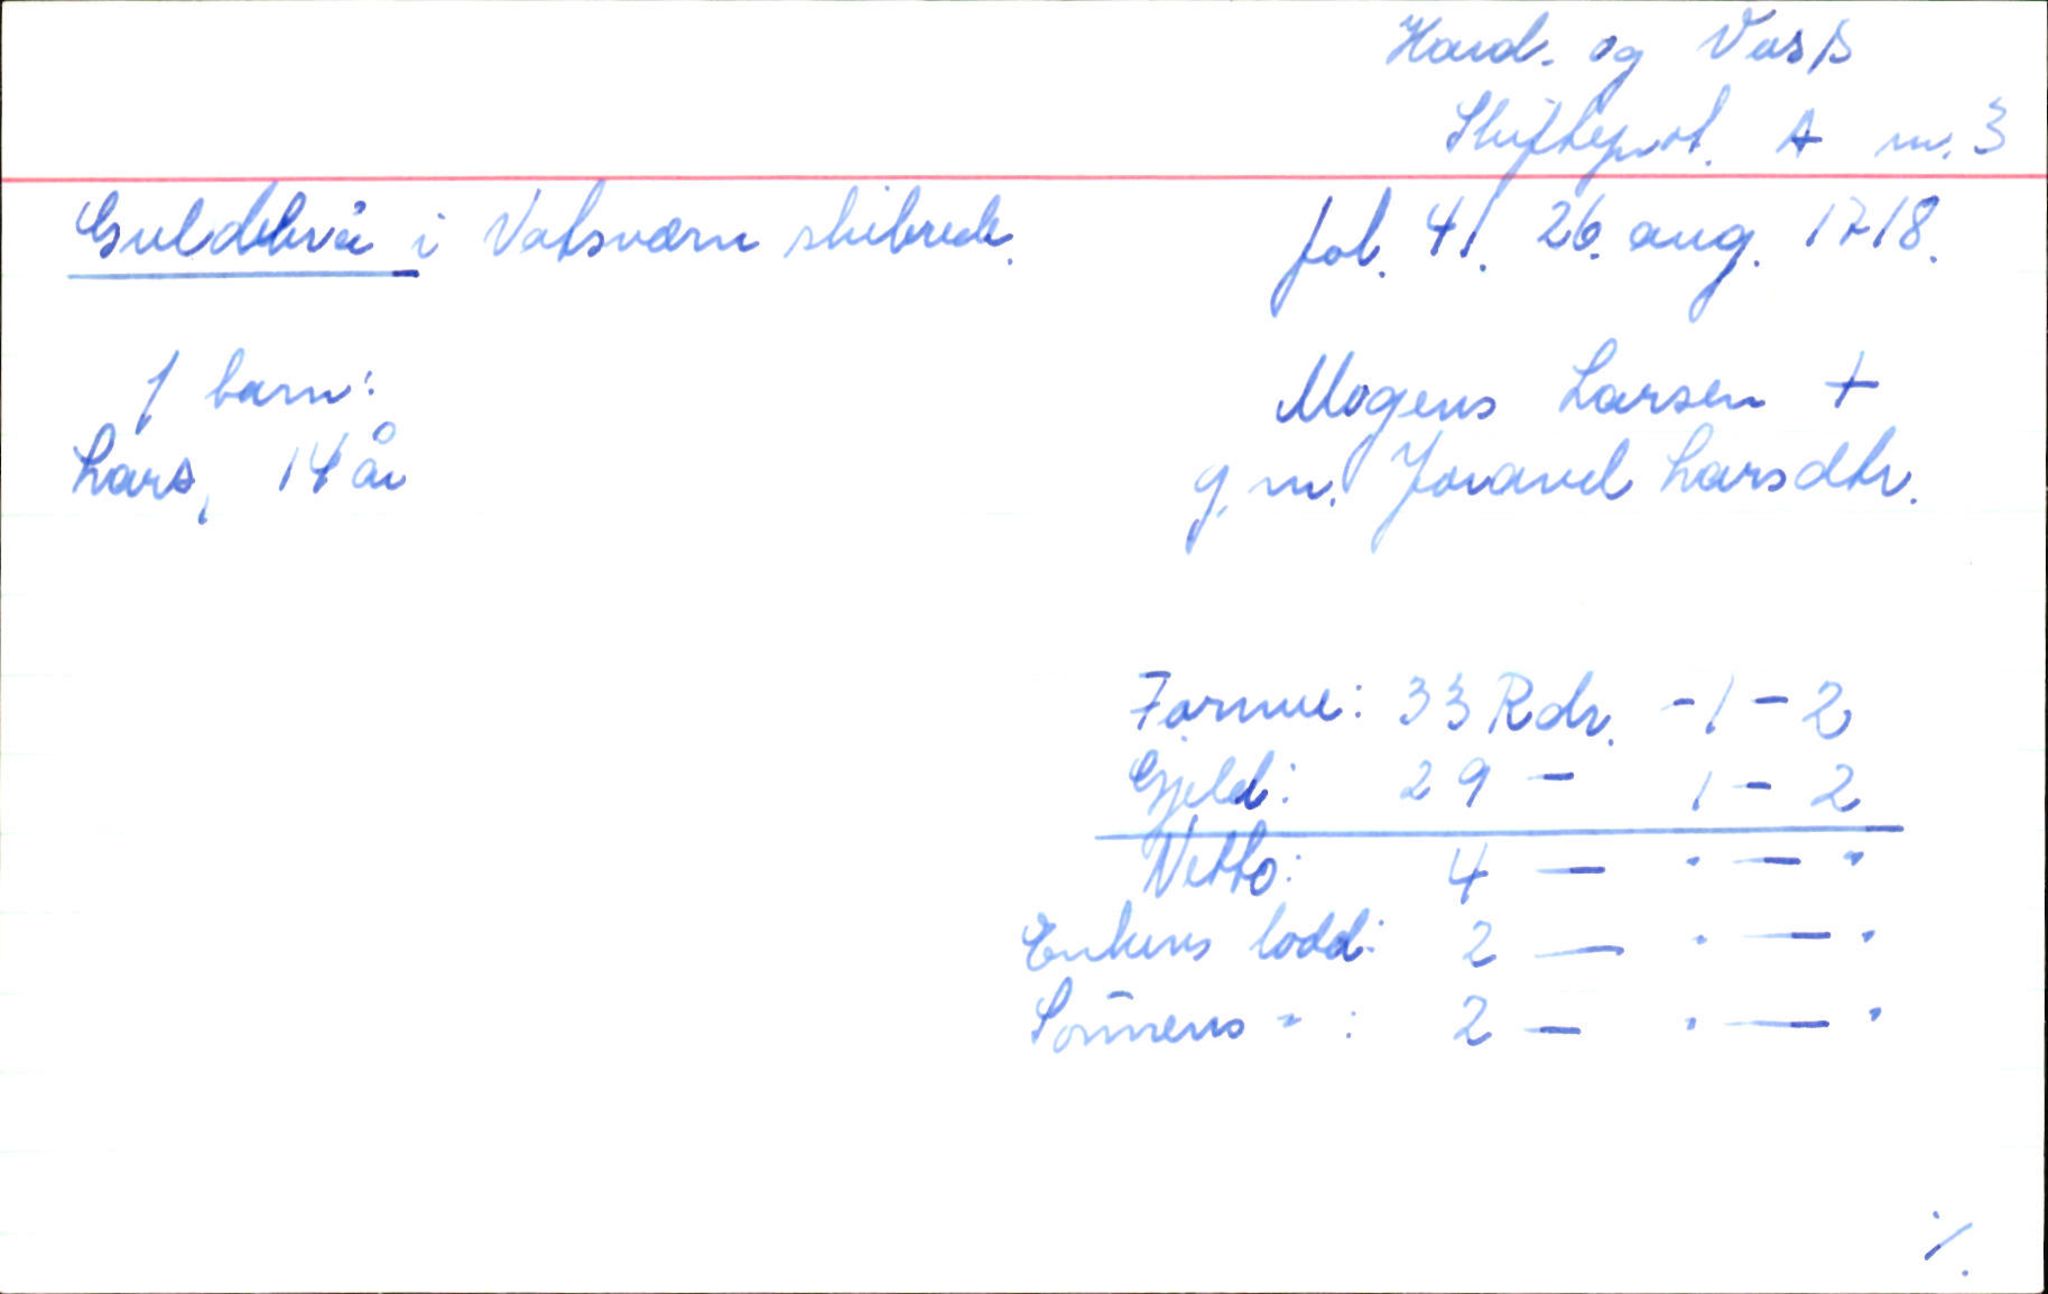 Hard. og Voss
Skifteprot. A nr. 3
Guldebrå i Vatsværn skibrede. fol. 41. 26. aug. 1718.
1 barn:
Lars, 14 år
Mogens Larsen +
g. m. Joravel Larsdtr.
Formue: 33 Rdr. - 1 - 2
Gjeld: 29 - 1 - 2
Netto: 4 — " — "
Enkens lodd: 2 — " — "
Sønnens " : 2 — " — "